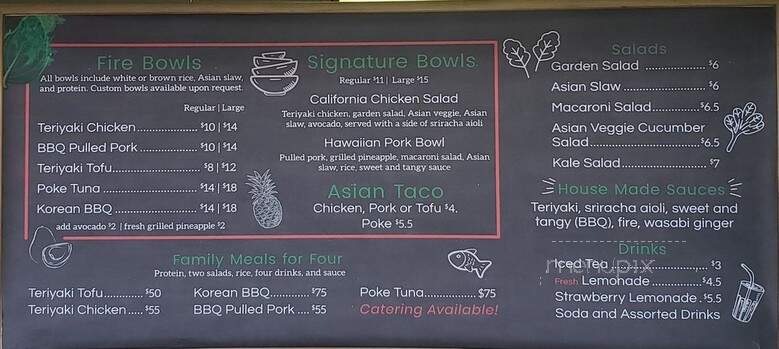 Fire Bowls
All bowls include white or brown rice, Asian slaw,
and protein. Custom bowls available upon request.
Regular | Large
Teriyaki Chicken ...................... $10 | $14
BBQ Pulled Pork .................... $10 | $14
Teriyaki Tofu........................... $8 | $12
Poke Tuna ............................. $14 | $18
Korean BBQ .......................... $14 | $18
add avocado $2 | fresh grilled pineapple $2
Signature Bowls
Regular $11 | Large $15
California Chicken Salad
Teriyaki chicken, garden salad, Asian veggie, Asian
slaw, avocado, served with a side of sriracha aioli
Hawaiian Pork Bowl
Pulled pork, grilled pineapple, macaroni salad, Asian
slaw, rice, sweet and tangy sauce
Asian Taco
Chicken, Pork or Tofu $4.
Poke $5.5
Family Meals for Four
Protein, two salads, rice, four drinks, and sauce
Teriyaki Tofu............ $50
Teriyaki Chicken..... $55
Korean BBQ........... $75
BBQ Pulled Pork .... $55
Poke Tuna............... $75
Catering Available!
Salads
Garden Salad .................. $6
Asian Slaw ....................... $6
Macaroni Salad............... $6.5
Asian Veggie Cucumber
Salad................................ $6.5
Kale Salad........................ $7
House Made Sauces
Teriyaki, sriracha aioli, sweet and
tangy (BBQ), fire, wasabi ginger
Drinks
Iced Tea........................... $3
Fresh Lemonade................... $4.5
Strawberry Lemonade . $5.5
Soda and Assorted Drinks
menupix